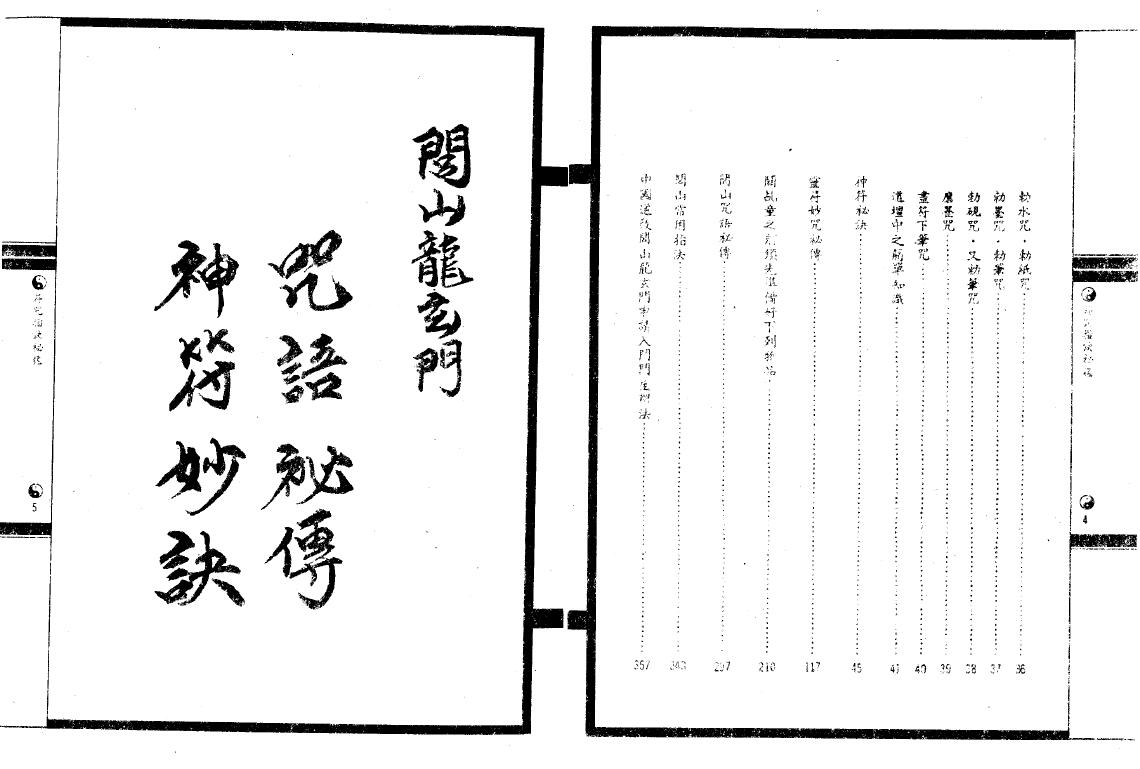 勅水咒·勅紙咒 36
勅墨咒·勅筆咒 37
勅硯咒·又勅筆咒 38
磨墨咒 39
畫符下筆咒 40
道壇中之簡單知識 41
神符秘訣 45
靈符妙咒秘傳 117
關乩童之前須先準備好下列物品 210
閭山咒語秘傳 297
閭山常用指法 343
中國道教閭山龍玄門申請入門門生辦法 357
4
閭山龍玄門
咒語秘傳
神符妙訣
符咒指訣秘傳
5